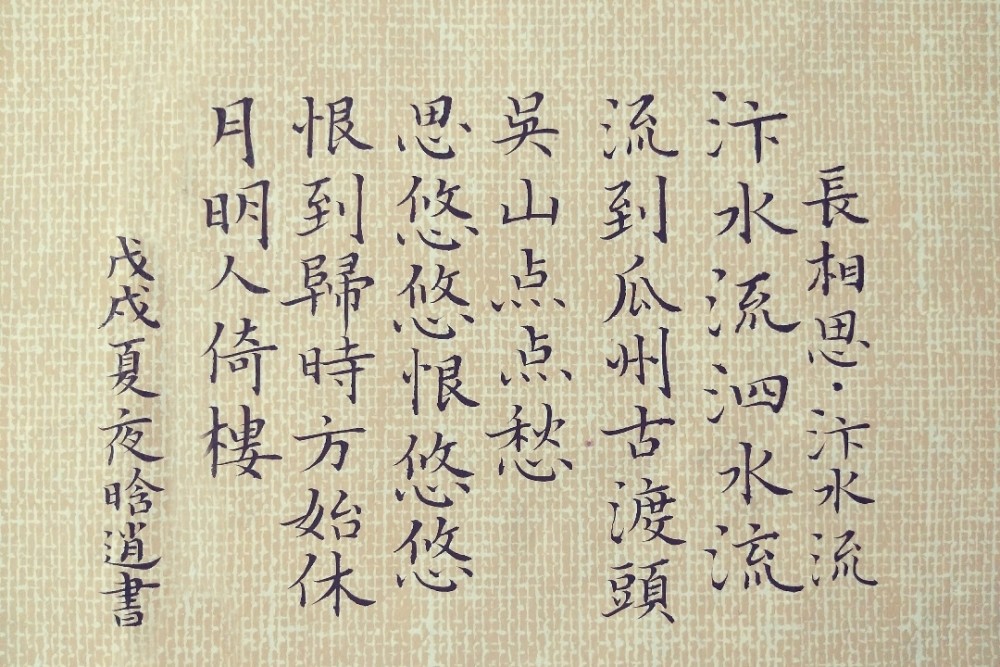 長相思·汴水流
汴水流泗水流
流到瓜州古渡頭
吳山点点愁
思悠悠恨悠悠
恨到歸時方始休
月明人倚樓
戊戌夏夜晗逍書